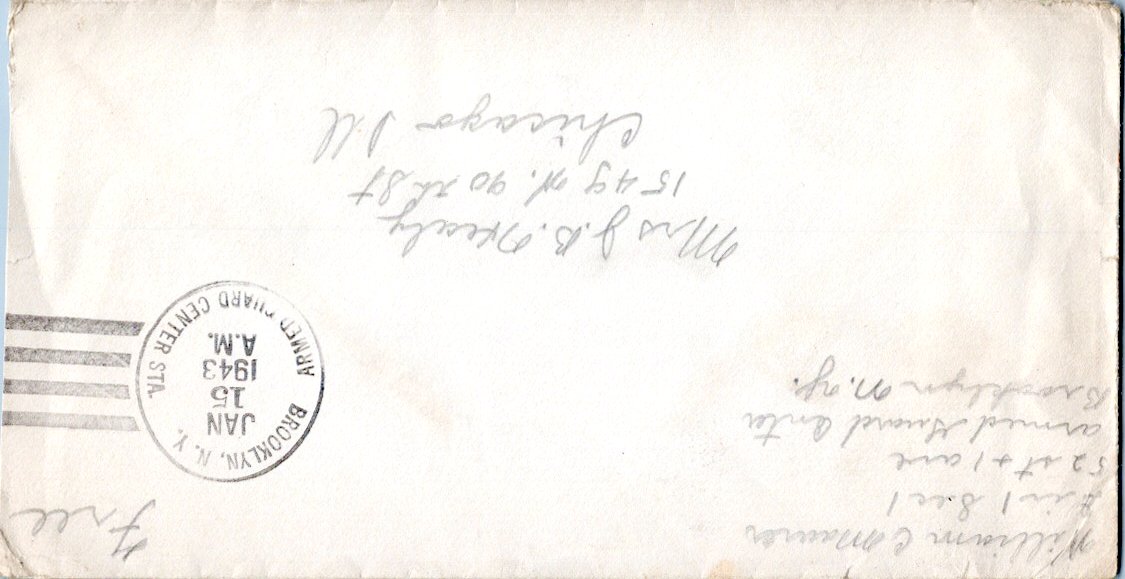 William C Maurer
Div 1 Sec 1
52 st & 1 ave
armed Guard Center
Brooklyn N.Y.
Free
BROOKLYN, N. Y.
JAN
15
1943
A.M.
ARMED GUARD CENTER STA.
Mrs J.B. Healy
1549 W. 90th St
Chicago Ill